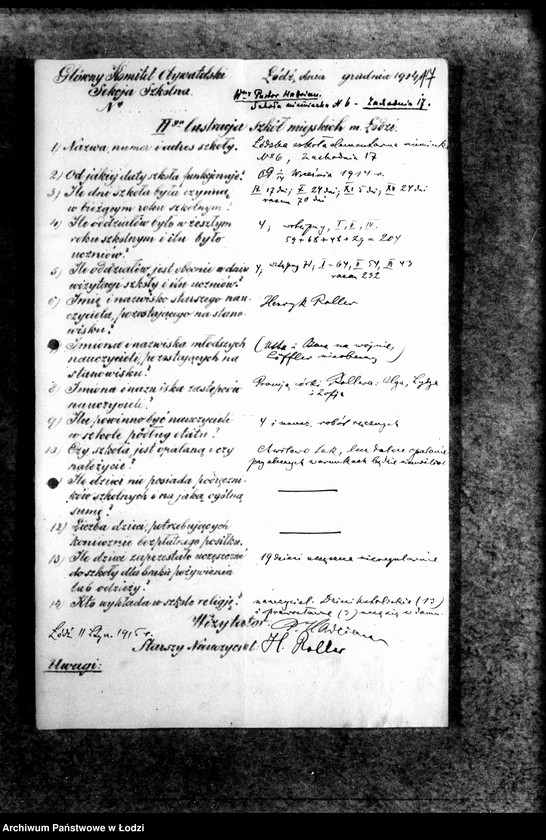 Główny Komitet Obywatelski
Sekcja Szkolna.
N°
Łódź, dnia grudnia 1914
Wny Pastor Hadrian.
Szkoła niemiecka N 6 - Zachodnia 17.
II ga lustracja Szkół miejskich m. Łodzi.
1) Nazwa, numer i adres szkoły.
Łódzka szkoła elementarna niemiecka
№ 6, Zachodnia 17
2) Od jakiej daty szkoła funkcjonuje?
Od Września 1914 r.
3) Ile dni szkoła była czynną
w bieżącym roku szkolnym?
IX 17 dni; X 24 dni; XI 5 dni; XII 24 dni
razem 70 dni
4) Ile oddziałów było w zeszłym
roku szkolnym i ilu było
uczniów?
4, wstępny, I, II, III.
59+68+48+29 = 204
5) Ile oddziałów jest obecnie w dniu
wizytacji szkoły i ilu uczniów?
4, wstępny 71, I - 64, II 54, III 43
razem 232
6) Imię i nazwisko starszego nau-
czyciela, pozostającego na stano-
wisku?
Henryk Roller
Imiona i nazwiska młodszych
nauczycieli, pozostających na
stanowisku?
na wojnie,
Löffler nieobecny)
8) Imiona i nazwiska zastępców
nauczycieli?
Pracują córki Rollera: Olga, Lydja
i Zofja
9) Ilu powinno być nauczycieli
w szkole podług etatu?
4 i naucz. robót ręcznych
10) Czy szkoła jest opalana i czy
należycie?
Chwilowo tak, lecz dalsze opalanie
przy obecnych warunkach będzie niemożliwe
Ile dzieci nie posiada podręczni-
ków szkolnych i na jaką ogólną
sumę?
12) Liczba dzieci, potrzebujących
koniecznie bezpłatnego posiłku.
13) Ile dzieci zaprzestało uczęszczać
do szkoły dla braku pożywienia
lub odzieży?
19 dzieci uczęszcza nieregularnie
14) Kto wykłada w szkole religię?
nauczyciel. Dzieci katolickie (13)
i prawosławne (3) uczą się w domu.
Wizytator:
Hadrian
Łódź 11 Stycz. 1915 r.
Starszy Nauczyciel: H. Roller
Uwagi:
Archiwum Państwowe w Łodzi